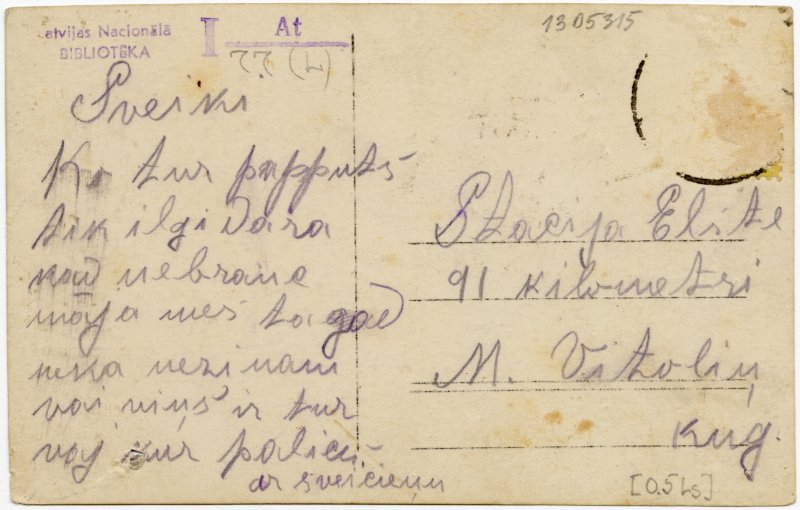 Latvijas Nacionālā
BIBLIOTĒKA
I
At
77 (L)
1305315
Sveiki
Ko tur papputs
tik ilgi dara
kad nebrauc
maja mes tagad
neka nezinam
vai viņš ir tur
vaj kur palicis
ar sveicieņu
Stacija Elste
91 kilometri
M. Vitoliņ
kug.
[0.5 Ls]